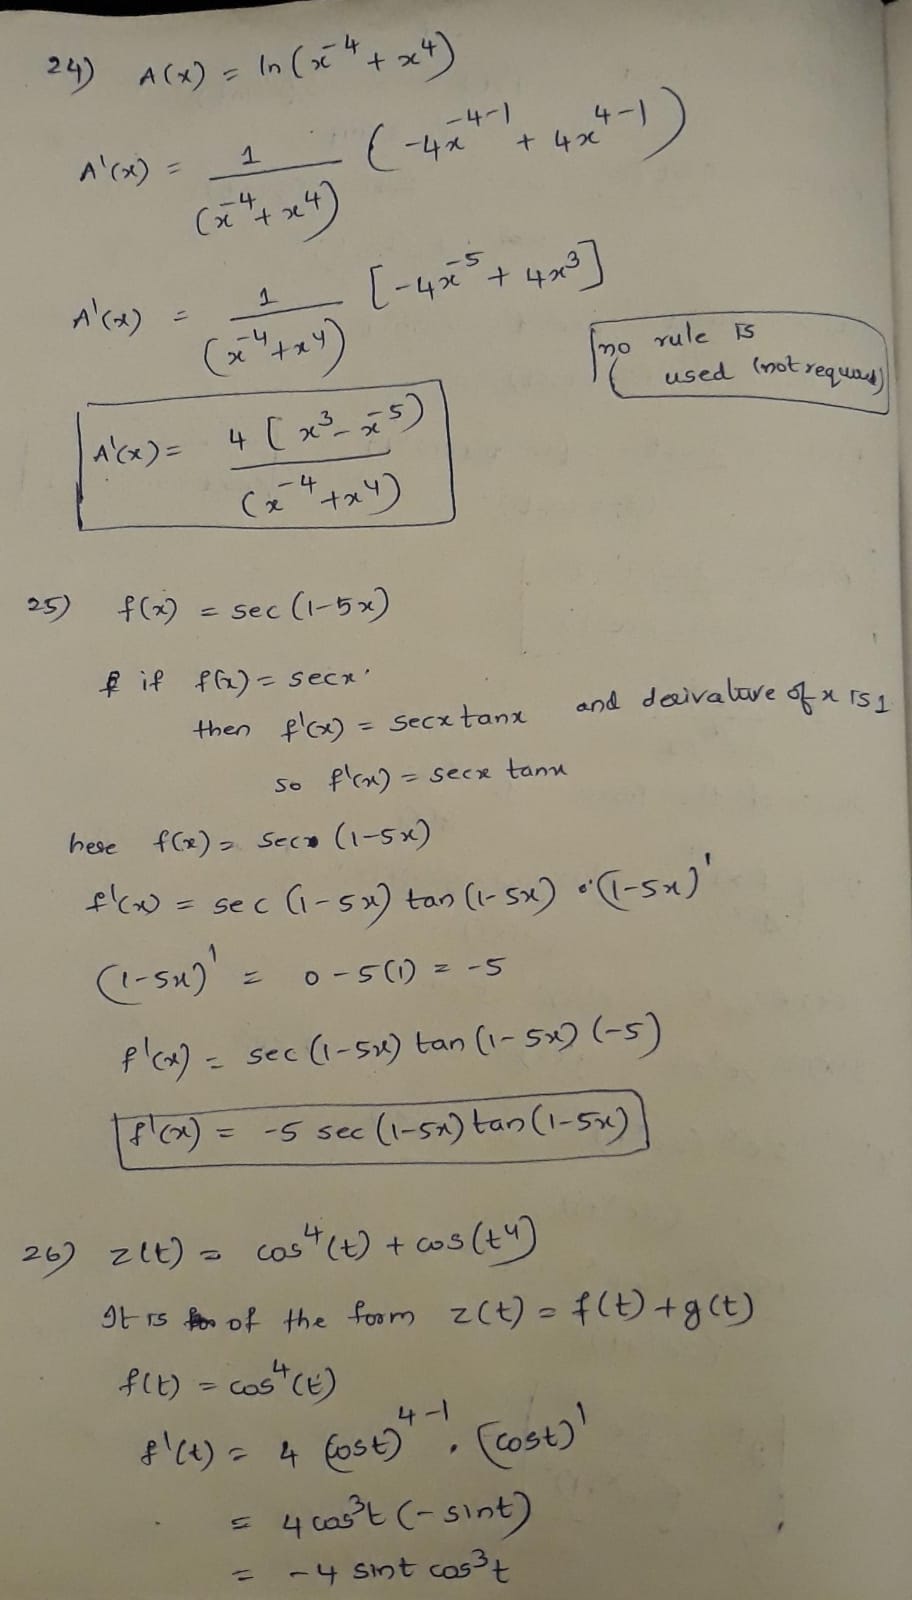 24) A(x) = ln(x⁻⁴ + x⁴)
A'(x) = 1/(x⁻⁴ + x⁴) (-4x⁻⁴⁻¹ + 4x⁴⁻¹)
A'(x) = 1/(x⁻⁴ + x⁴) [-4x⁻⁵ + 4x³]
no rule is
used (not required)
A'(x) = 4[x³ - x⁻⁵)/(x⁻⁴ + x⁴)
25) f(x) = sec(1-5x)
if f(x) = secx
then f'(x) = secx tanx and derivative of x is 1
so f'(x) = secx tanx
here f(x) = sec(1-5x)
f'(x) = sec(1-5x) tan(1-5x) · (1-5x)'
(1-5x)' = 0-5(1) = -5
f'(x) = sec(1-5x) tan(1-5x) (-5)
f'(x) = -5 sec(1-5x) tan(1-5x)
26) z(t) = cos⁴(t) + cos(t⁴)
It is of the form z(t) = f(t) + g(t)
f(t) = cos⁴(t)
f'(t) = 4 (cost)⁴⁻¹ . (cost)'
= 4cos³t (-sint)
= -4 sint cos³t